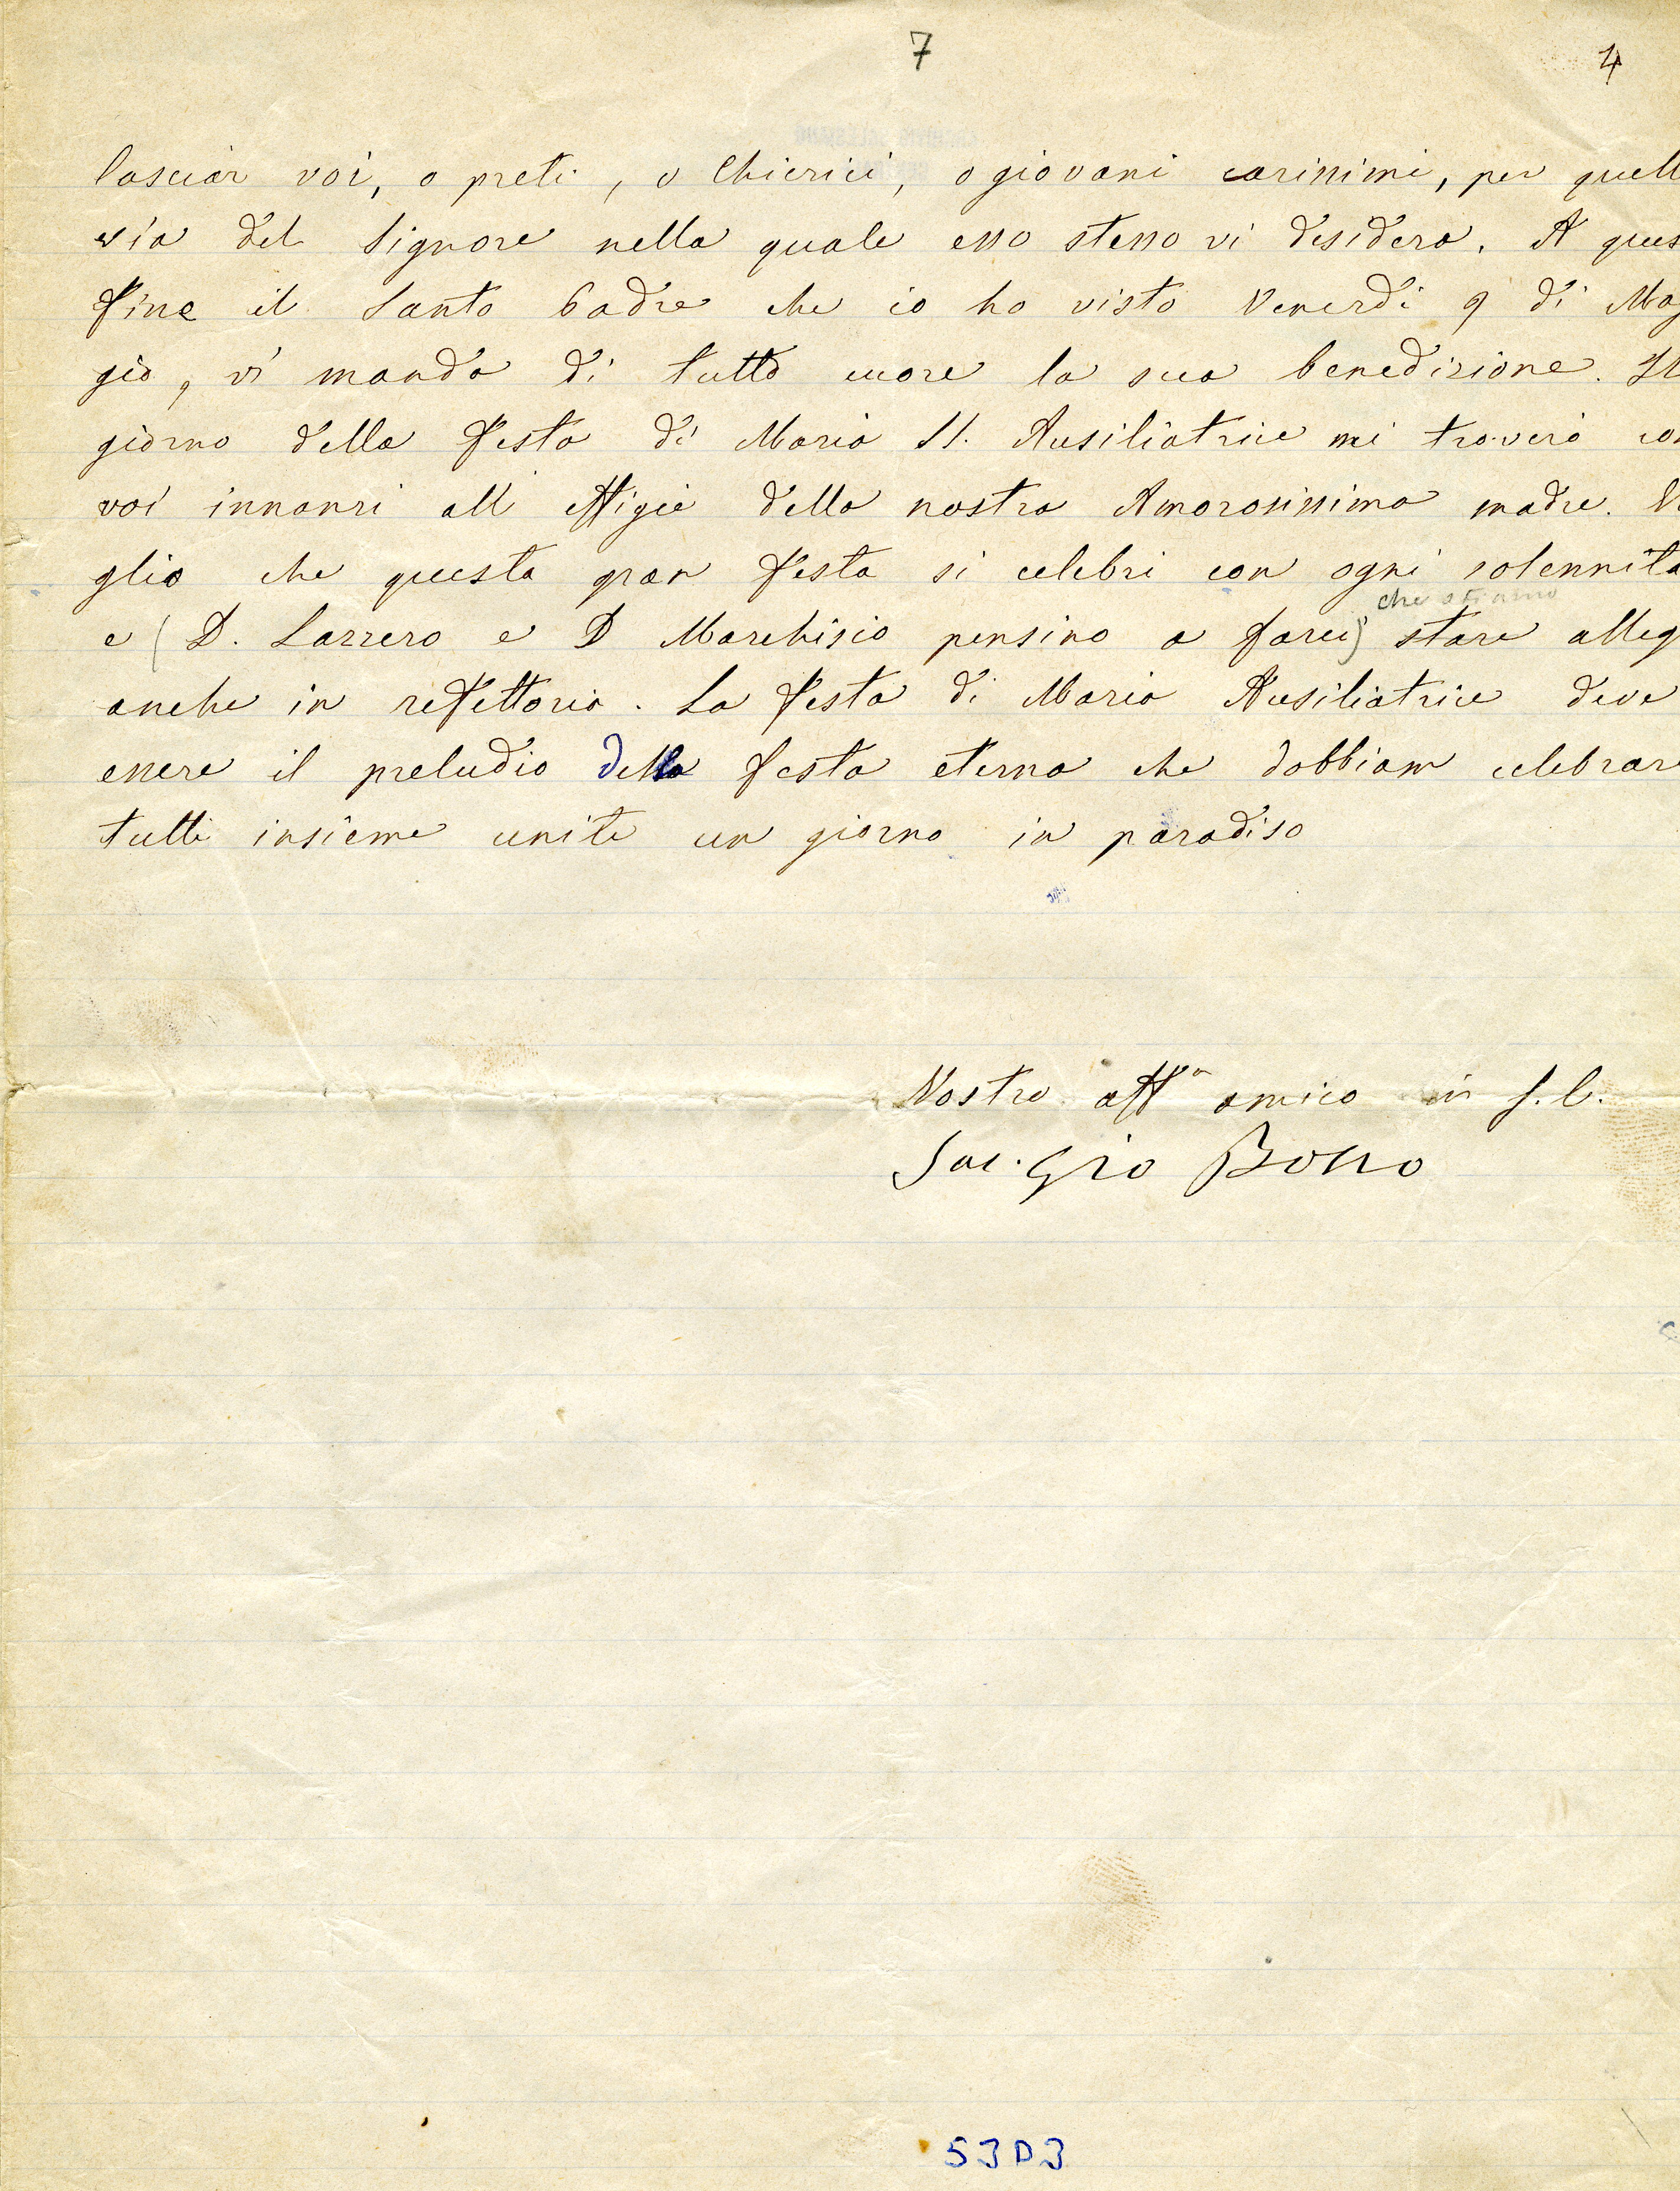 7
4
lasciar voi, o preti, o Chierici, o giovani carissimi, per quell
via del Signore nella quale esso stesso vi desidera. A ques
fine il Santo Padre che io ho visto Venerdi 9 di Mag
gio, vi manda di tutto cuore la sua benedizione. Il
giorno della festa di Maria SS. Ausiliatrice mi troverò con
voi innanzi all effigie della nostra Amorosissima madre. Vo
glio che questa gran festa si celebri con ogni solennità
che stiamo
e (D. Lazzero e D Marchisio pensino a farci) stare alleg
anche in refettorio. La festa di Maria Ausiliatrice deve
essere il preludio della festa eterna che dobbiam celebrare
tutti insieme uniti un giorno in paradiso
Vostro aff.o amico in J. C.
Sac. Gio Bosco
53D3